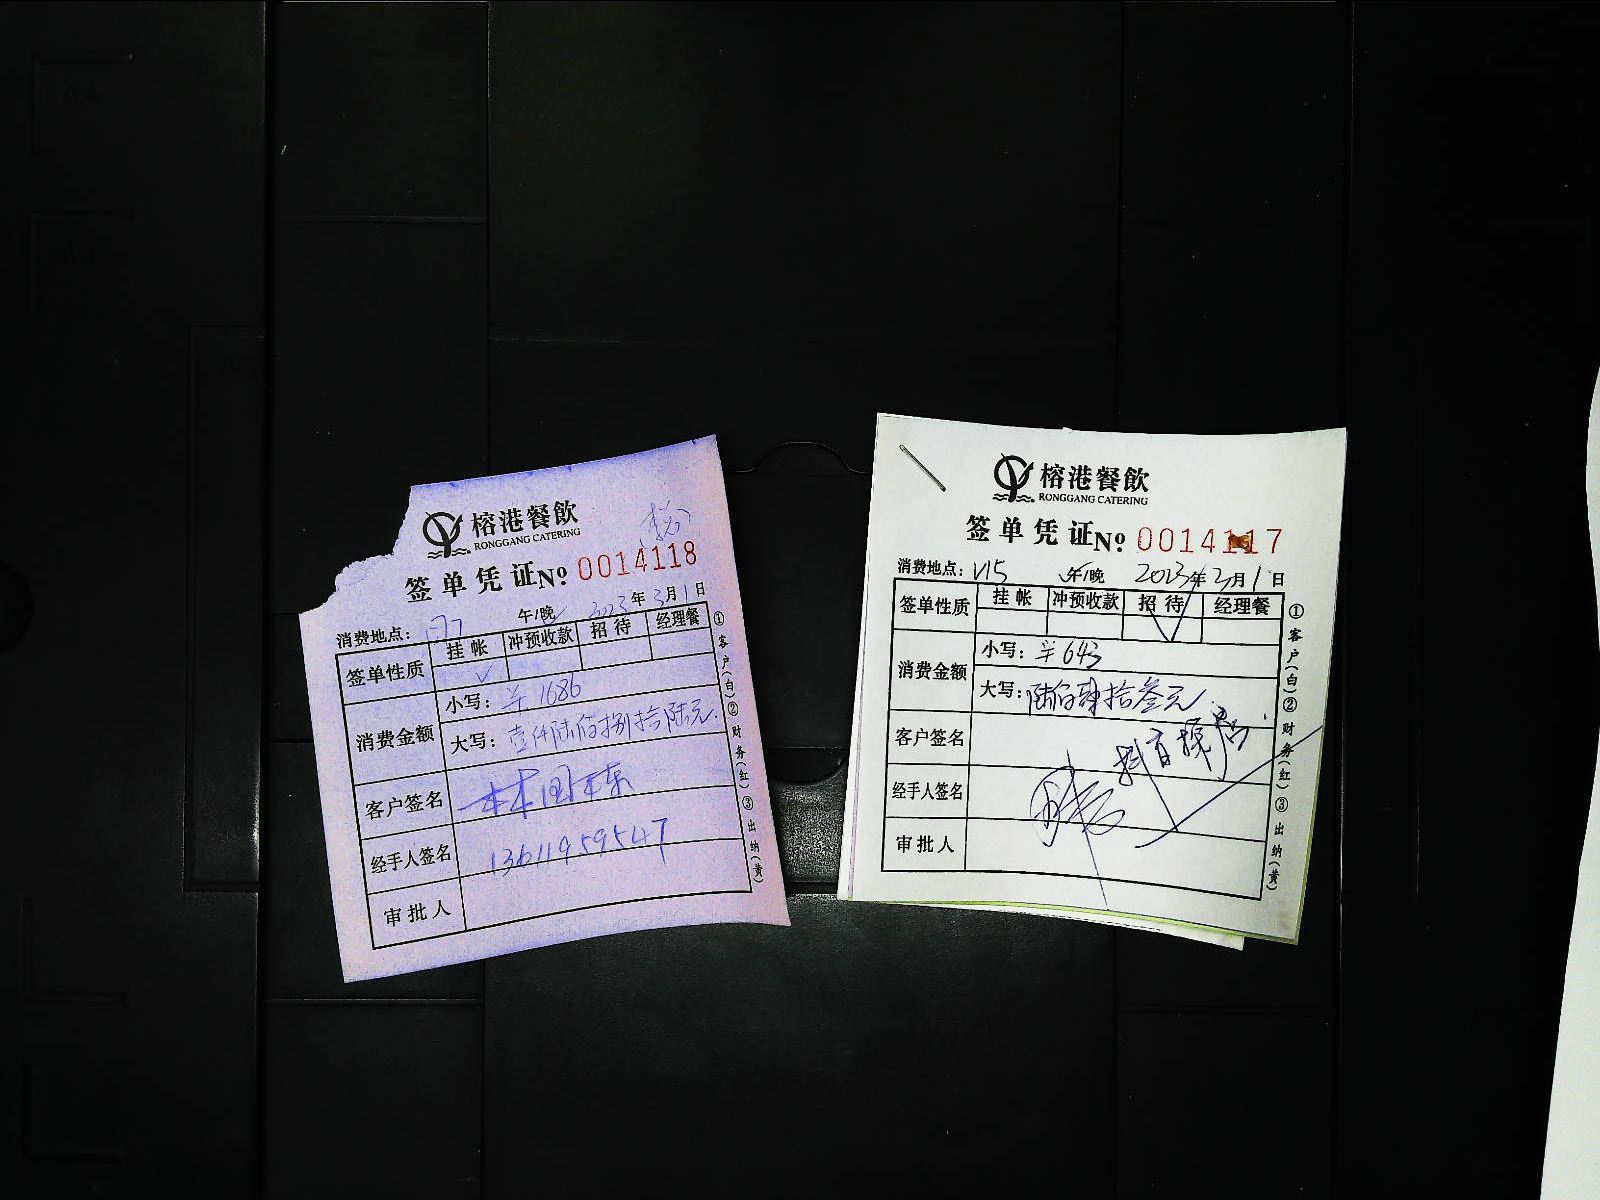 榕港餐飲
RONGGANG CATERING
签单凭证№ 0014118
消费地点: 午/晚 2023年3月1日
签单性质 挂帐 冲预收款 招待 经理餐
✓
消费金额 小写: ¥1686
大写: 壹仟陆佰捌拾陆元
客户签名
经手人签名 13611959547
审批人
①客户(白)②财务(红)③出纳(黄)
榕港餐飲
RONGGANG CATERING
签单凭证№ 0014117
消费地点: V15 午/晚 2023年3月1日
签单性质 挂帐 冲预收款 招待 经理餐
✓
消费金额 小写: ¥643
大写: 陆佰肆拾叁元
客户签名
经手人签名
审批人
①客户(白)②财务(红)③出纳(黄)